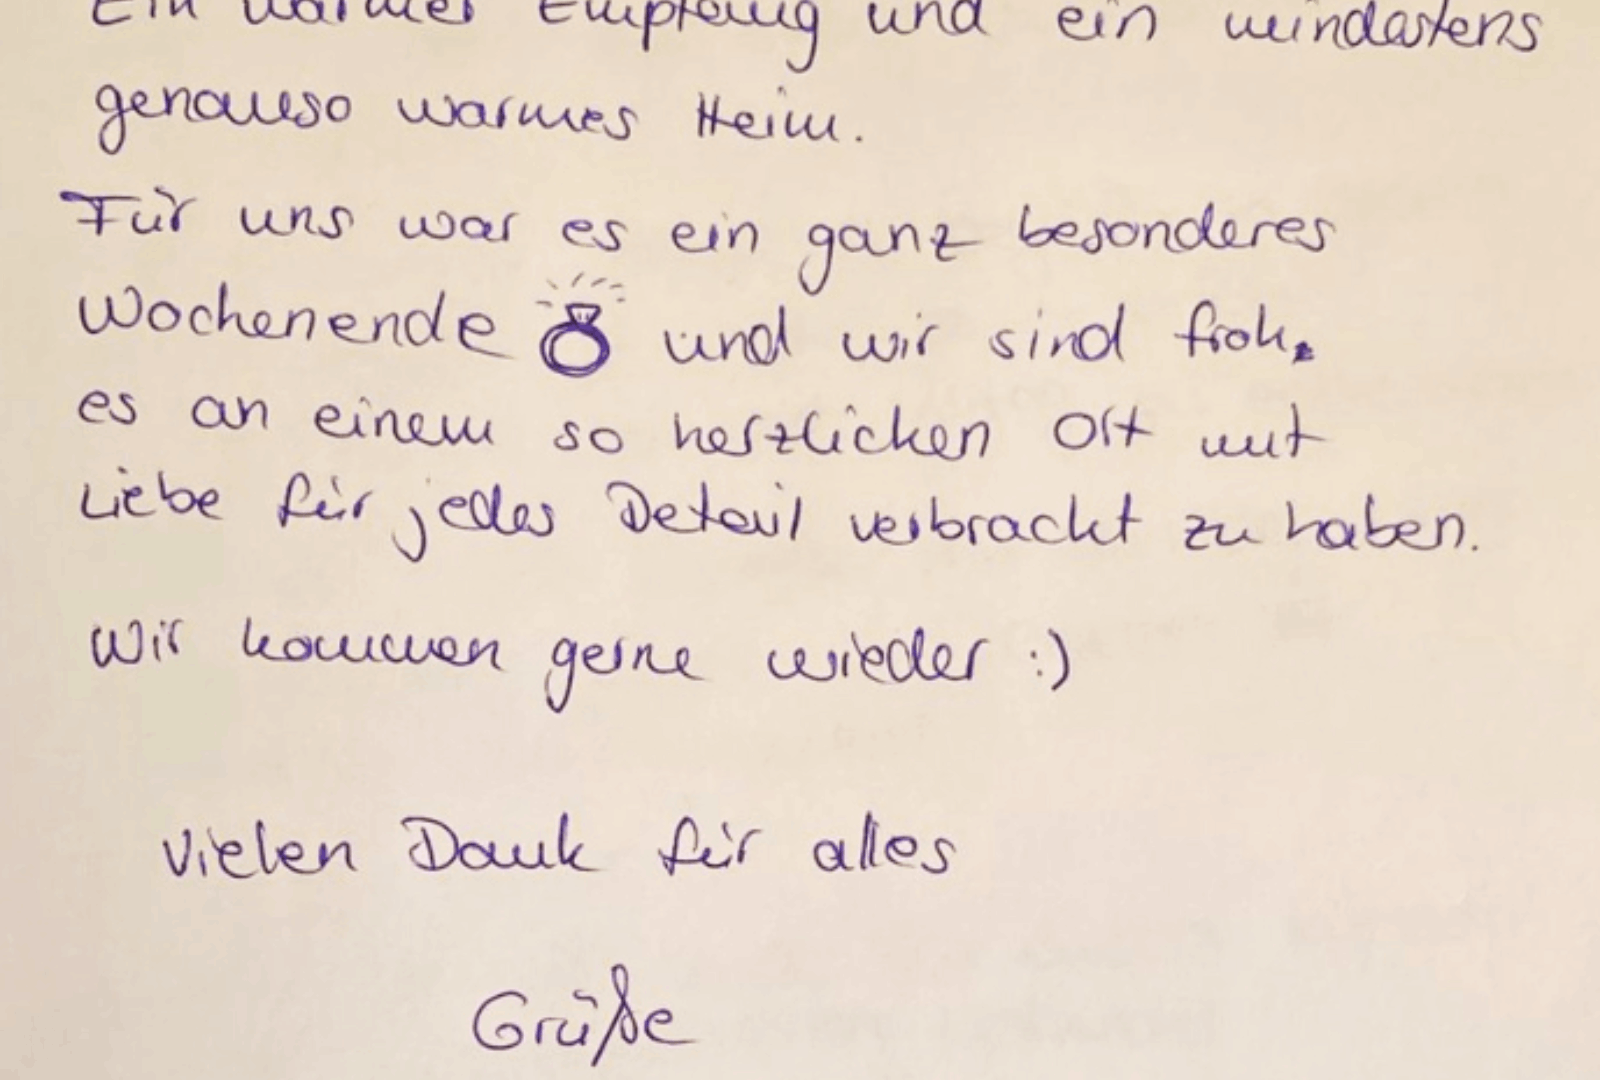 Ein warmer Empfang und ein mindestens
genauso warmes Heim.
Für uns war es ein ganz besonderes
Wochenende 💍 und wir sind froh,
es an einem so herzlichen Ort mit
Liebe für jedes Detail verbracht zu haben.
Wir kommen gerne wieder :)
Vielen Dank für alles
Grüße